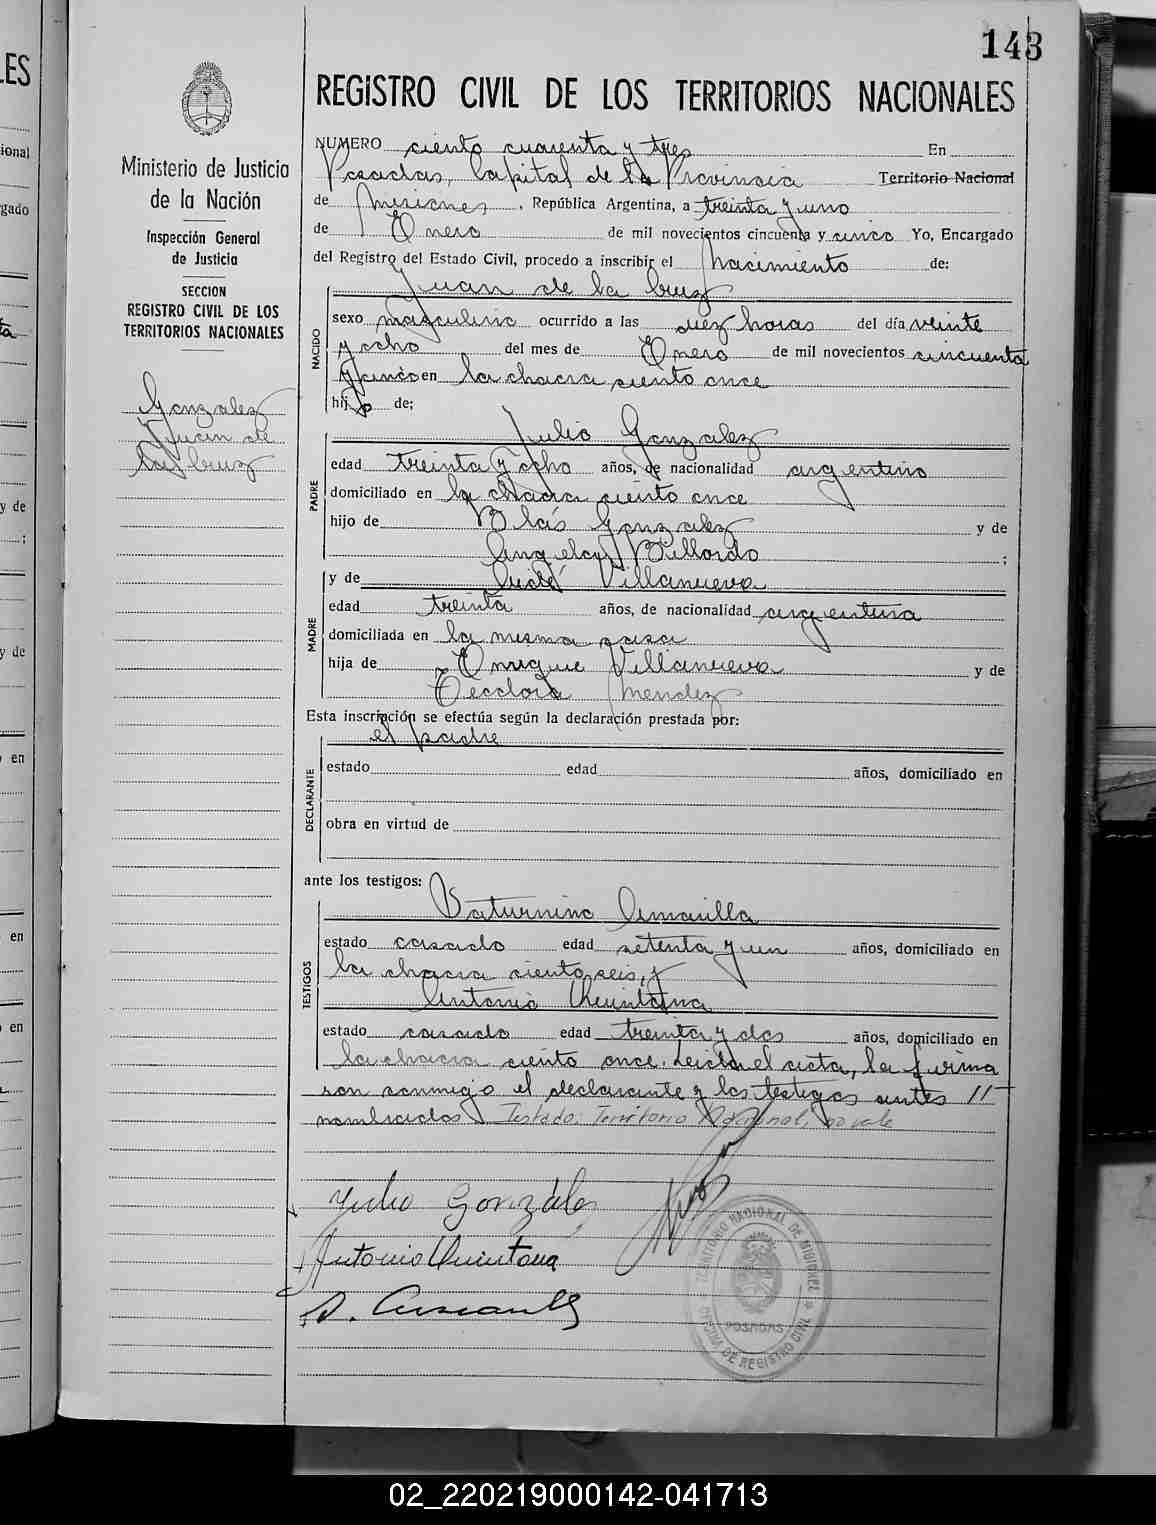 143
REGISTRO CIVIL DE LOS TERRITORIOS NACIONALES
Ministerio de Justicia
de la Nación
Inspección General
de Justicia
SECCION
REGISTRO CIVIL DE LOS
TERRITORIOS NACIONALES
Gonzalez
Juan de
la Cruz
NUMERO ciento cuarenta y tres En
Posadas, Capital de la Provincia Territorio Nacional
de Misiones, República Argentina, a treinta y uno
de Enero de mil novecientos cincuenta y cinco Yo, Encargado
del Registro del Estado Civil, procedo a inscribir el Nacimiento de:
Juan de la Cruz
NACIDO
sexo masculino ocurrido a las diez horas del día veinte
y ocho del mes de Enero de mil novecientos cincuenta
y cinco en la chacra ciento once
hijo de;
Julio Gonzalez
PADRE
edad treinta y ocho años, de nacionalidad argentino
domiciliado en la chacra ciento once
hijo de Blás Gonzalez y de
Angela Billordo ;
y de Villanueva
MADRE
edad treinta años, de nacionalidad argentina
domiciliada en la misma casa
hija de Enrique Villanueva y de
Teodora Mendez
Esta inscripción se efectúa según la declaración prestada por:
el padre
DECLARANTE
estado edad años, domiciliado en
obra en virtud de
ante los testigos:
Saturnino Amarilla
TESTIGOS
estado casado edad setenta y un años, domiciliado en
la chacra ciento seis, y
Antonio Quintana
estado casado edad treinta y dos años, domiciliado en
la chacra ciento once. Leida el acta, la firma
son conmigo el declarante y los testigos antes
nombrados Testado: Territorio Nacional, no vale
Julio Gonzáles
Antonio Quintana
TERRITORIO NACIONAL DE MISIONES
POSADAS
OFICINA DE REGISTRO CIVIL
02_220219000142-041713